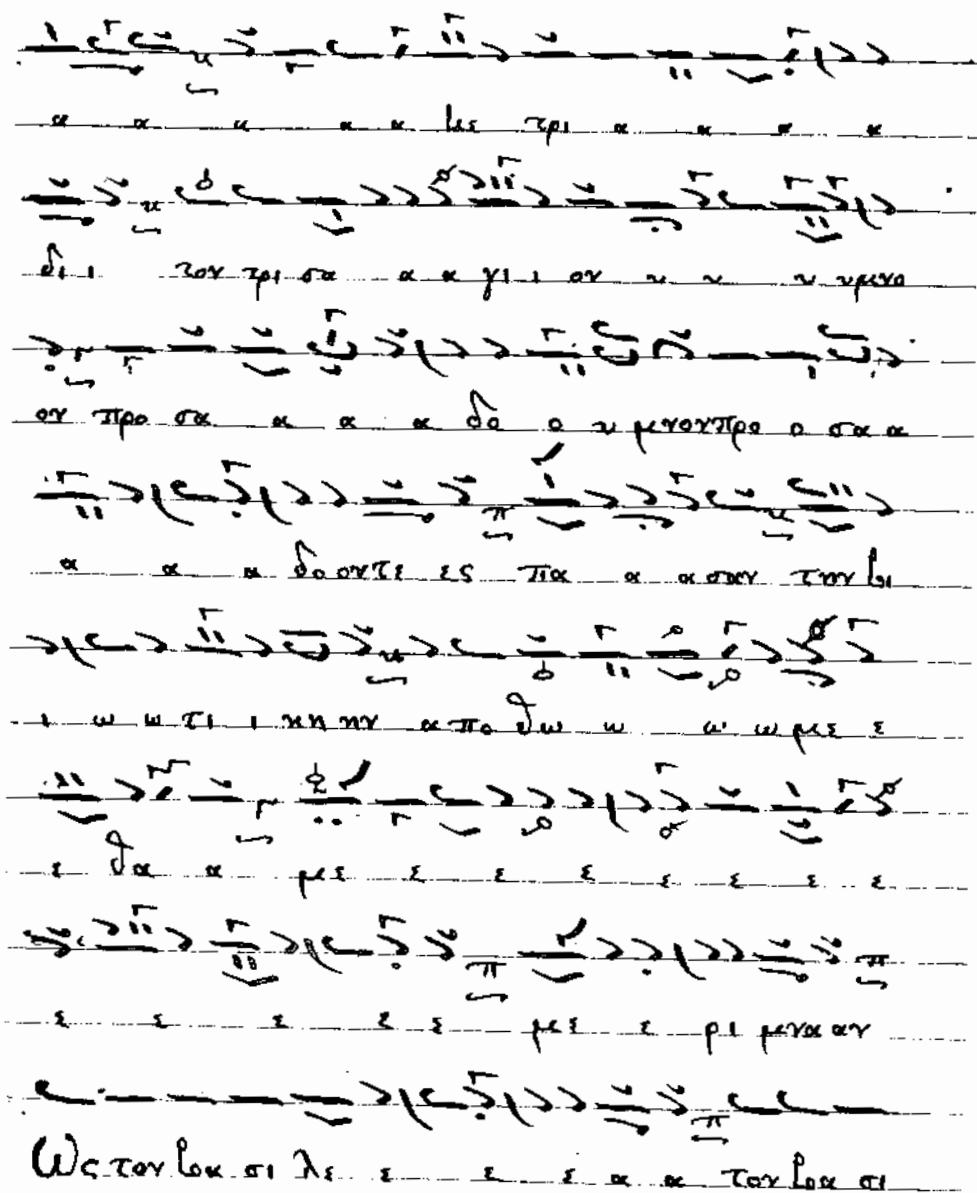 α α α α α βις τρι α α α α
δι ι τον τρι σα α α γι ι ον υ υ υ υμνο
ον προ σα α α α δο ο υ μνον προ ο σα α
α α α δο οντε ες πα α α σαν την βι
ι ω ω τι ι κη ην α πο θω ω ω ω με ε
ε θα α με ε ε ε ε ε ε ε
ε ε ε ε ε με ε ρι μνα αν
Ως τον βα σι λε ε ε ε α α τον βα σι